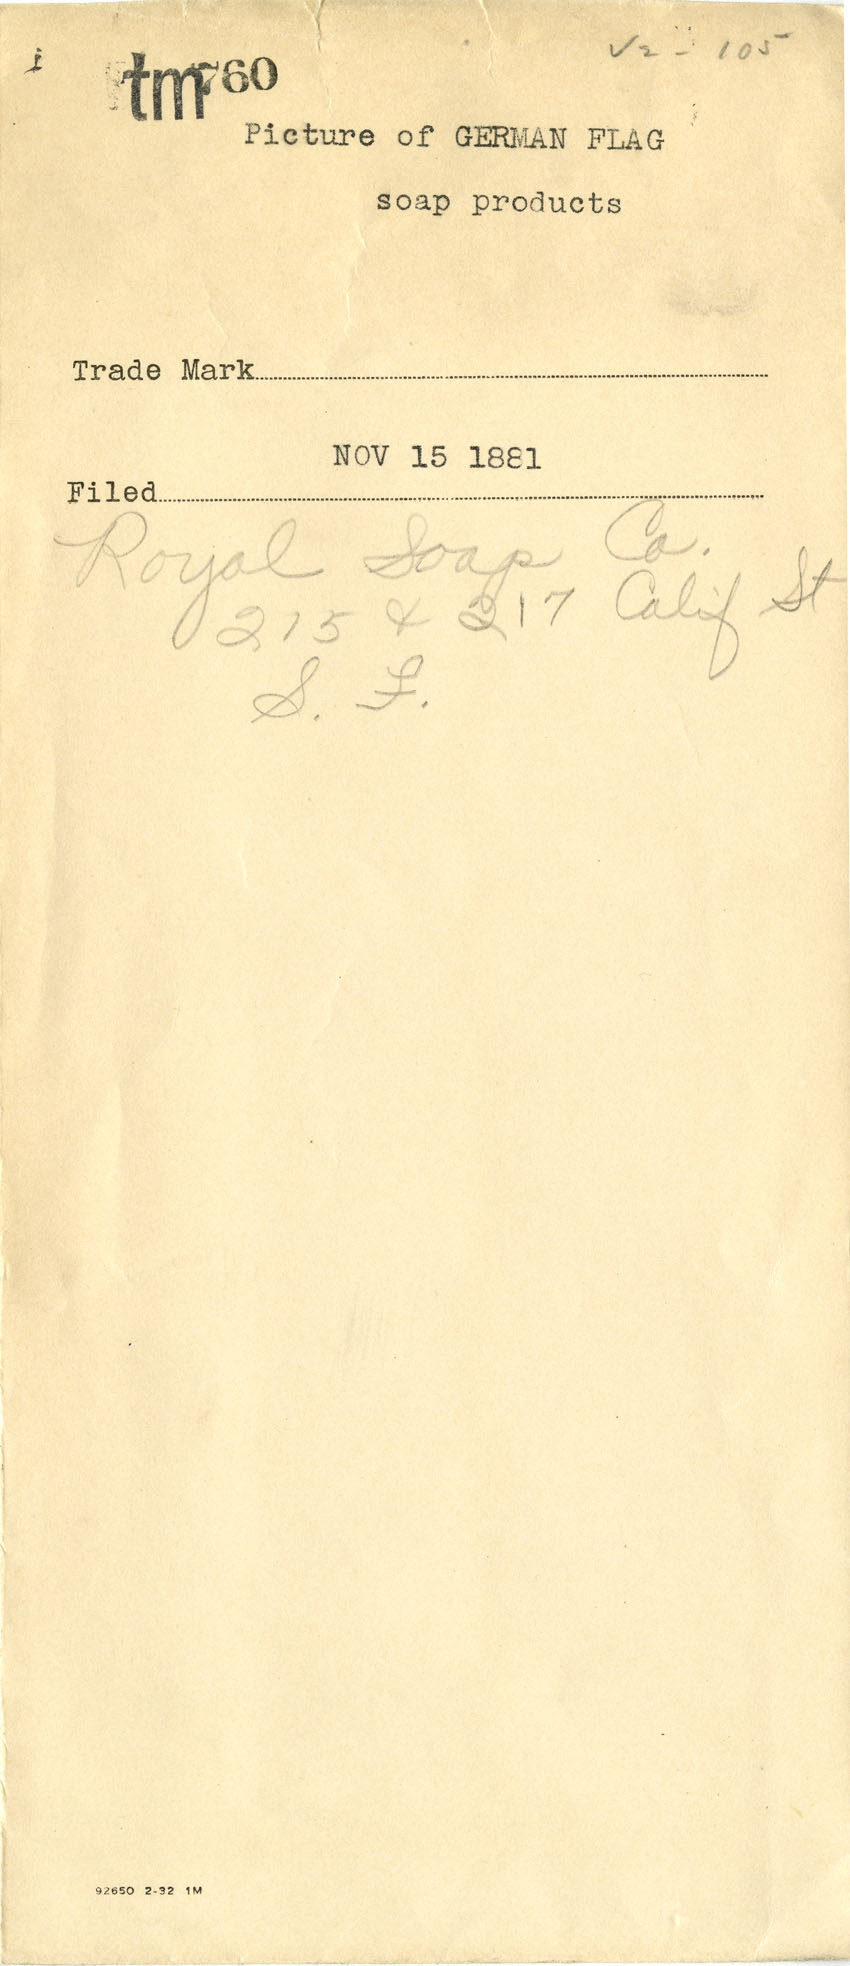 V2 - 105
tm 760
Picture of GERMAN FLAG
soap products
Trade Mark
NOV 15 1881
Filed
Royal Soap Co.
215 & 217 Calif St
S. F.
92650 2-32 1M